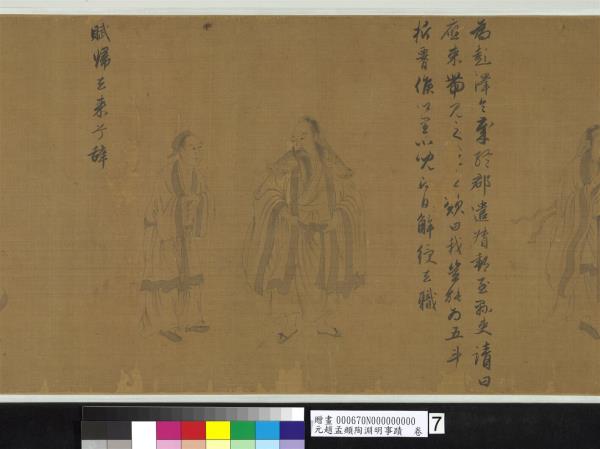 為彭澤令歲終郡遣督郵至縣吏請曰
應束帶見之歎曰我豈能為五斗
折腰里小兒即日解綬去職
賦歸去來兮辭
贈畫 000670N000000000
元趙孟頫陶淵明事蹟 卷
7